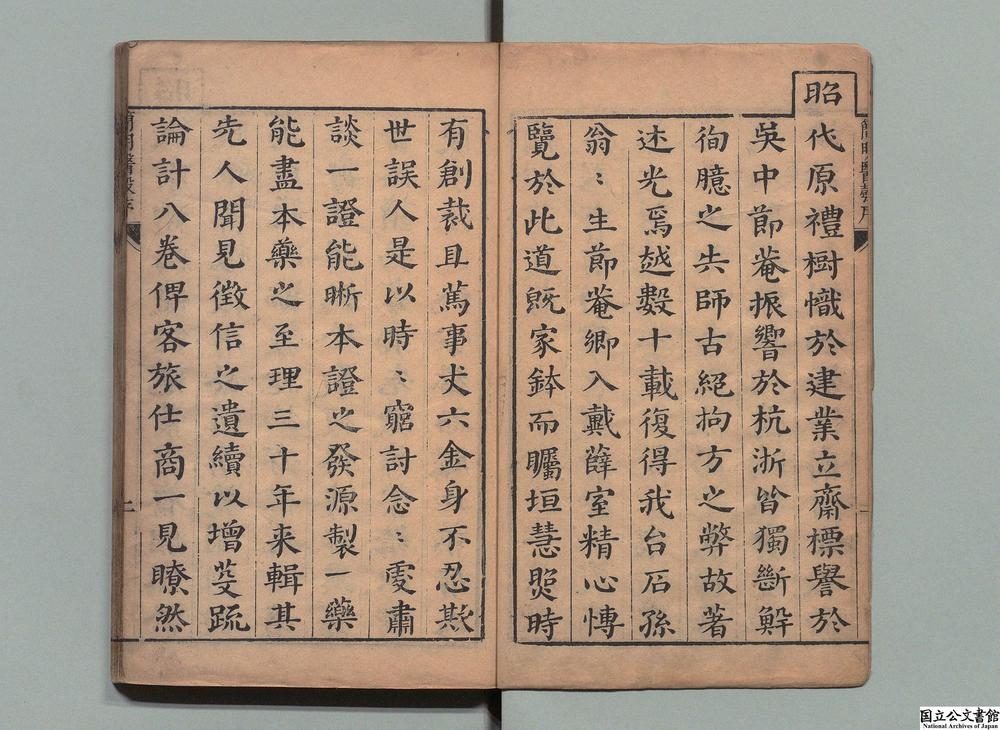 昭
代原禮樹幟於建業立齋標譽於
吳中節菴振響於杭浙皆獨斷觧
徇臆之失師古絕拘方之弊故著
述光焉越數十載復得我台石孫
翁〻生節菴鄉入戴薛室精心慱
覽於此道旣家鉢而矚垣慧炤時
有創裁且蒿事犬六金身不忍欺
世誤人是以時〻窮討念〻虔肅
談一證能晰本證之發源製一藥
能盡本藥之至理三十年来輯其
先人聞見徵信之遺續以增芟疏
論計八卷俾客旅仕商一見瞭然
簡明醫彀序
一
二
国立公文書館
National Archives of Japan